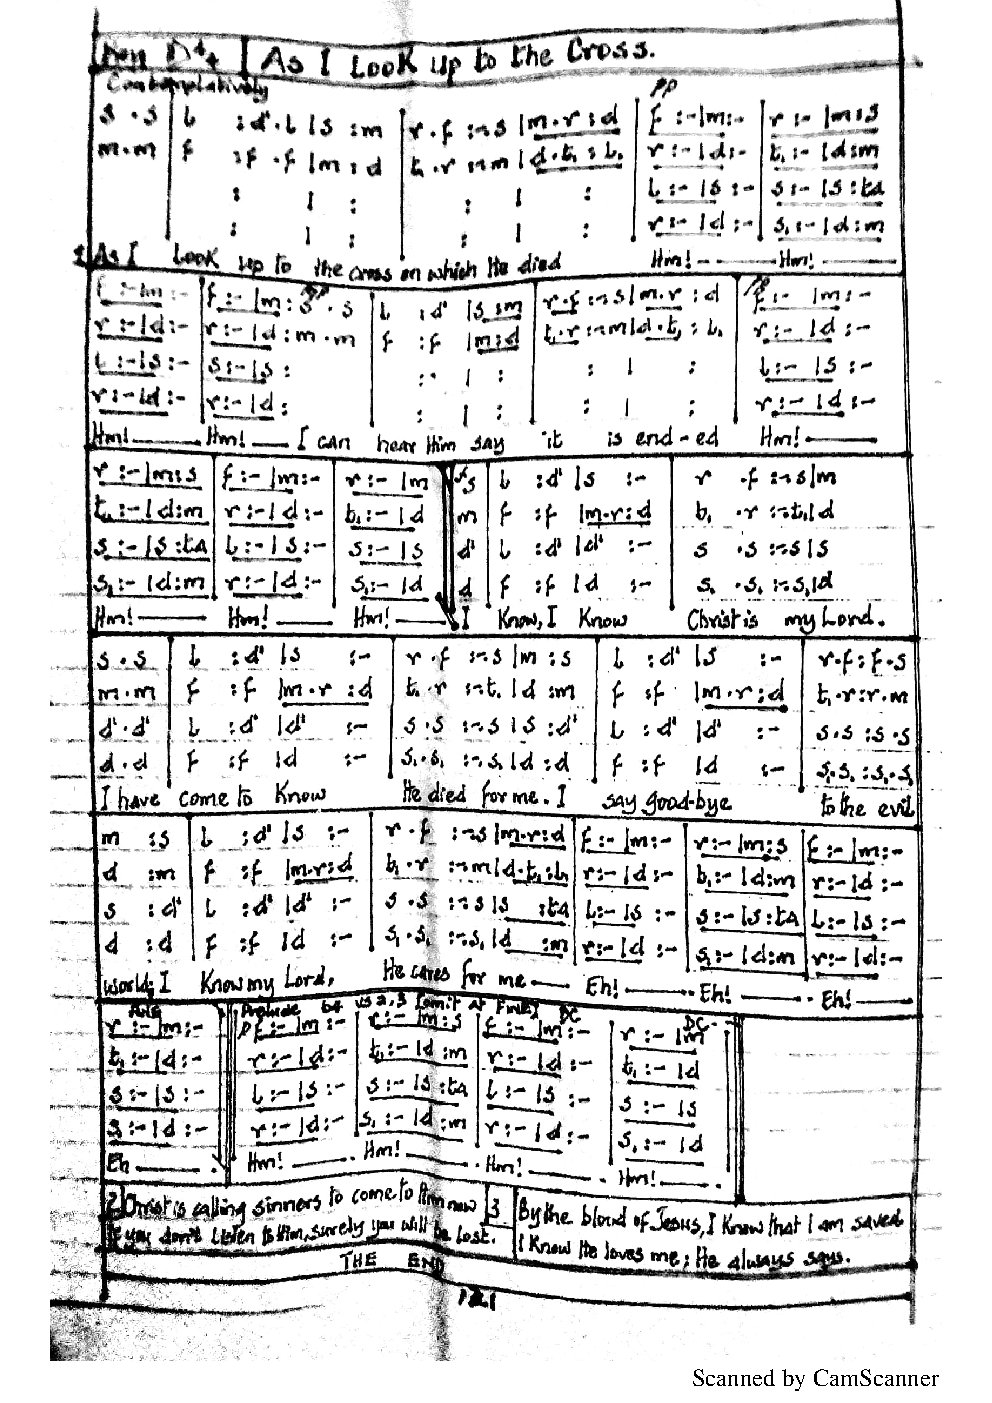 As I Look up to the Cross.
Contemplatively
pp
s .s | l :d'.l | s :m | r .f :-.s | m.r :d | f :- | m :- | r :- | m :s
m.m | f :f .f | m :d | t₁.r :-.m | d.t₁ :l₁ | r :- | d :- | t₁ :- | d :m
: | : : | : l :- | s :- | s :- | s :ta
: | : : | : r :- | d :- | s₁ :- | d :m
1 As I Look up to the cross on which He died Hm! Hm!
f :- | m :- | f :- | m : s .s | l :d' | s :m | r.f :-.s | m.r :d | f :- | m :-
r :- | d :- | r :- | d :m.m | f :f | m :d | t₁.r :-.m | d.t₁ :l₁ | r :- | d :-
l :- | s :- | s :- | s : : | : : | : l :- | s :-
r :- | d :- | r :- | d : : | : : | : r :- | d :-
Hm! Hm! I can hear Him say it is end-ed Hm!
r :- | m :s | f :- | m :- | r :- | m s | l :d' | s :- | r .f :-.s | m
t₁ :- | d :m | r :- | d :- | t₁ :- | d m | f :f | m.r :d | t₁ .r :-.t₁ | d
s :- | s :ta | l :- | s :- | s :- | s d' | l :d' | d' :- | s .s :-.s | s
s₁ :- | d :m | r :- | d :- | s₁ :- | d d | f :f | d :- | s₁ .s₁ :-.s₁ | d
Hm! Hm! Hm! I Know, I Know Christ is my Lord.
s .s | l :d' | s :- | r .f :-.s | m :s | l :d' | s :- | r.f :f.s
m.m | f :f | m.r :d | t₁.r :-.t₁ | d :m | f :f | m.r :d | t₁.r :r.m
d'.d' | l :d' | d' :- | s.s :-.s | s :d' | l :d' | d' :- | s.s :s.s
d.d | f :f | d :- | s₁.s₁ :-.s₁ | d :d | f :f | d :- | s₁.s₁ :s₁.s₁
I have come to Know He died for me. I say good-bye to the evil
m :s | l :d' | s :- | r .f :-.s | m.r :d | f :- | m :- | r :- | m :s | f :- | m :-
d :m | f :f | m.r :d | t₁.r :-.m | d.t₁ :l₁ | r :- | d :- | t₁ :- | d :m | r :- | d :-
s :d' | l :d' | d' :- | s .s :-.s | s :ta | l :- | s :- | s :- | s :ta | l :- | s :-
d :d | f :f | d :- | s₁.s₁ :-.s₁ | d :m | r :- | d :- | s₁ :- | d :m | r :- | d :-
world; I Know my Lord, He cares for me Eh! Eh! Eh!
Prelude vs 2, 3 DC
r :- | m :- | pf :- | m :- | r :- | m :s | f :- | m :- | r :- | m DC
t₁ :- | d :- | r :- | d :- | t₁ :- | d :m | r :- | d :- | t₁ :- | d
s :- | s :- | l :- | s :- | s :- | s :ta | l :- | s :- | s :- | s
s₁ :- | d :- | r :- | d :- | s₁ :- | d :m | r :- | d :- | s₁ :- | d
Eh Hm! Hm! Hm! Hm!
2 Christ is calling sinners to come to Him now
If you don't Listen to Him, surely you will be lost.
3 By the blood of Jesus, I know that I am saved
I Know He loves me; He always says.
THE END
121
Scanned by CamScanner